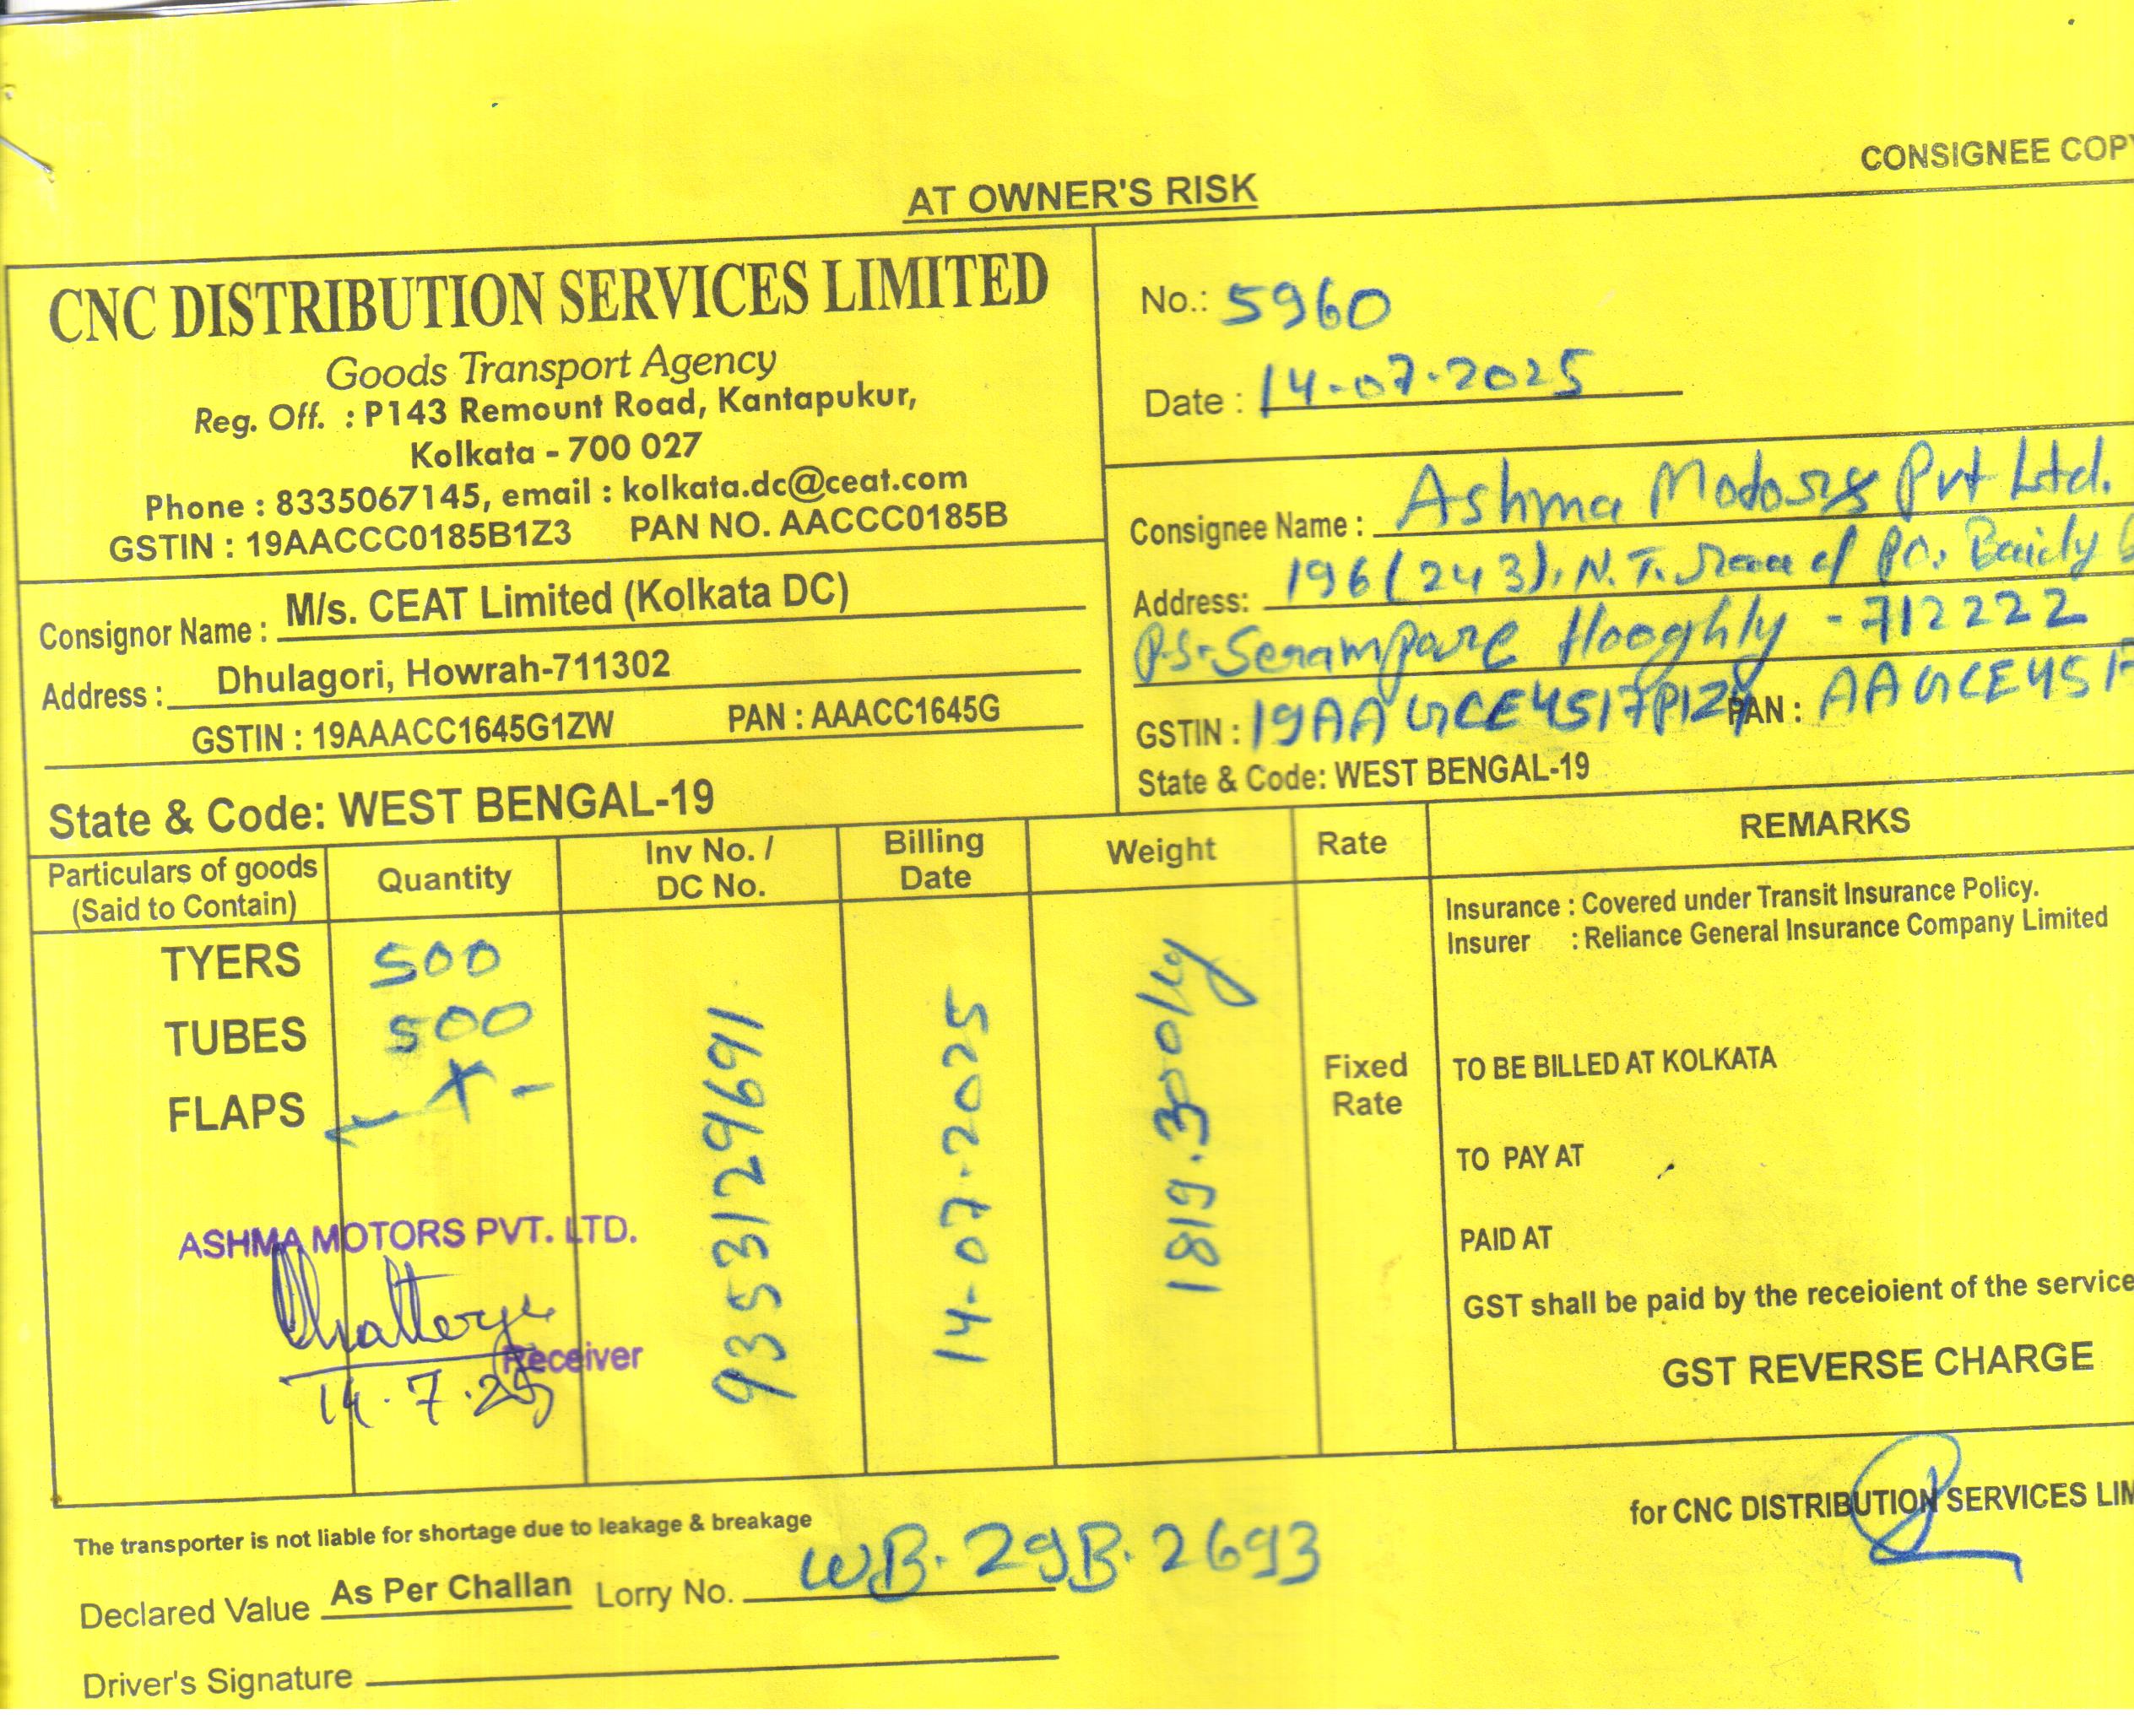 CONSIGNEE COPY
AT OWNER'S RISK
CNC DISTRIBUTION SERVICES LIMITED
Goods Transport Agency
Reg. Off. : P143 Remount Road, Kantapukur,
Kolkata - 700 027
Phone : 8335067145, email : kolkata.dc@ceat.com
GSTIN : 19AACCC0185B1Z3 PAN NO. AACCC0185B
No.: 5960
Date : 14-07-2025
Consignor Name : M/s. CEAT Limited (Kolkata DC)
Address : Dhulagori, Howrah-711302
GSTIN : 19AAACC1645G1ZW PAN : AAACC1645G
State & Code: WEST BENGAL-19
Consignee Name : Ashma Motors Pvt Ltd.
Address: 196(243), N.T. Road Po.
P.S- Serampore Hooghly - 712222
GSTIN : PAN :
State & Code: WEST BENGAL-19
Particulars of goods (Said to Contain) Quantity Inv No. / DC No. Billing Date Weight Rate REMARKS
TYERS 500
TUBES 500
FLAPS - X -
9353129691
14-07-2025
819.300 kg
Fixed Rate
Insurance : Covered under Transit Insurance Policy.
Insurer : Reliance General Insurance Company Limited
TO BE BILLED AT KOLKATA
TO PAY AT
PAID AT
GST shall be paid by the receioient of the service
GST REVERSE CHARGE
ASHMA MOTORS PVT. LTD.
Chatterjee
Receiver
14.7.25
for CNC DISTRIBUTION SERVICES LIM
The transporter is not liable for shortage due to leakage & breakage
Declared Value As Per Challan Lorry No. WB. 29B. 2693
Driver's Signature